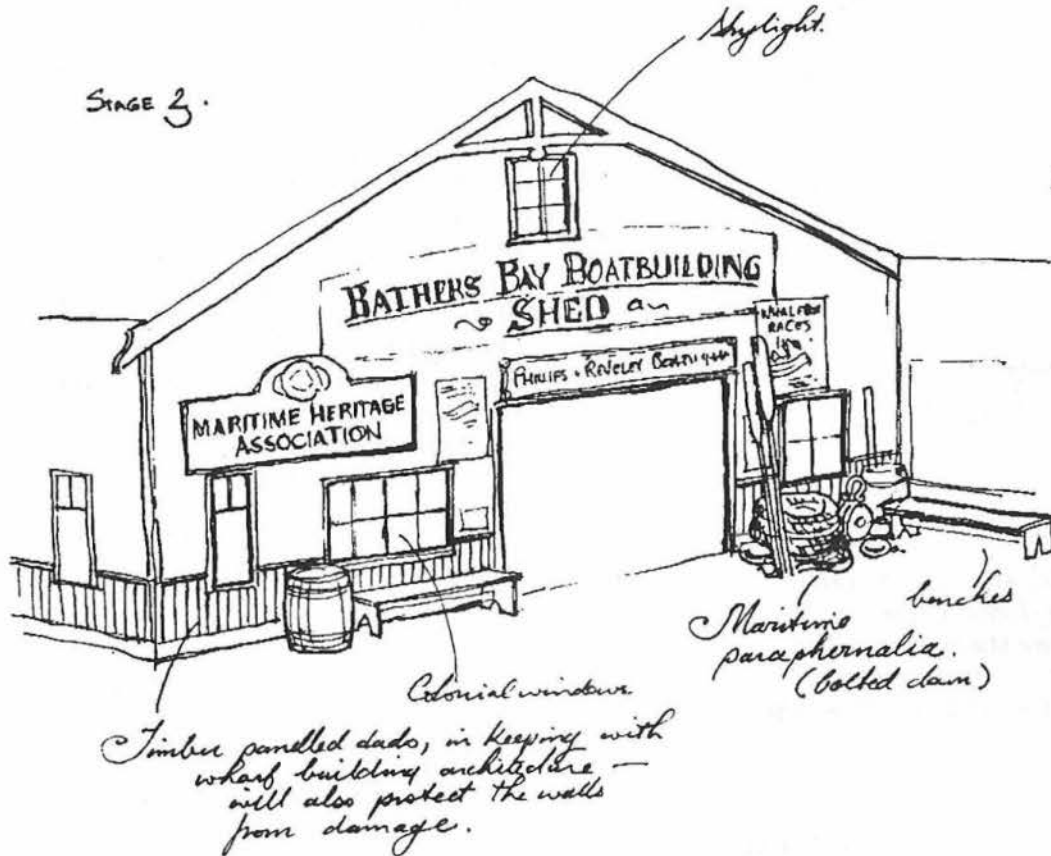 Skylight.
STAGE 2.
BATHERS BAY BOATBUILDING
SHED
WHALEBOAT
RACES
PHILLIPS & REVELEY
MARITIME HERITAGE
ASSOCIATION
benches
Maritime
paraphernalia.
(bolted down)
Colonial windows
Timber panelled dado, in keeping with
wharf building architecture —
will also protect the walls
from damage.